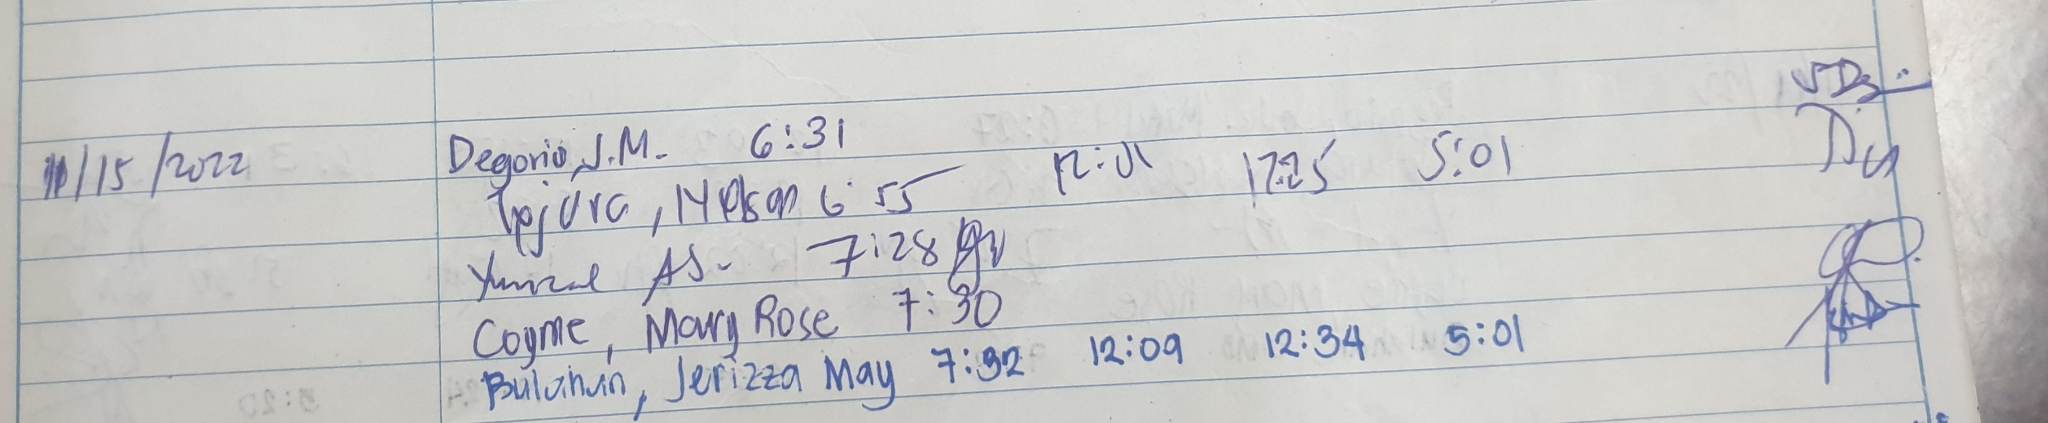 11/15/2022 Degorio, J.M. 6:31
Tejura, Nelson 6:55 12:01 12:25 5:01
AS. 7:28
Coyme, Mary Rose 7:30
Bulahan, Jerizza May 7:32 12:09 12:34 5:01